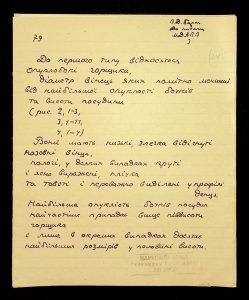 79
До первого типу відносяться
опуклобокі горщики,
діаметр вінець яких помітно менший
від найбільшої опуклості бочків
та висоти посудини
(рис. 2, 1–3,
Вони мають низькі, злегка відігнуті
назовні вінця,
пологі, у деяких випадках круті
і ясно виражені, плічка
та
і переважно виділені у профілі
денця.
Найбільша опуклість бочків посудин
найчастіше припадає вище піввисоти
горщика
і лише в окремих випадках досягає
найбільших розмірів у половині висоти.